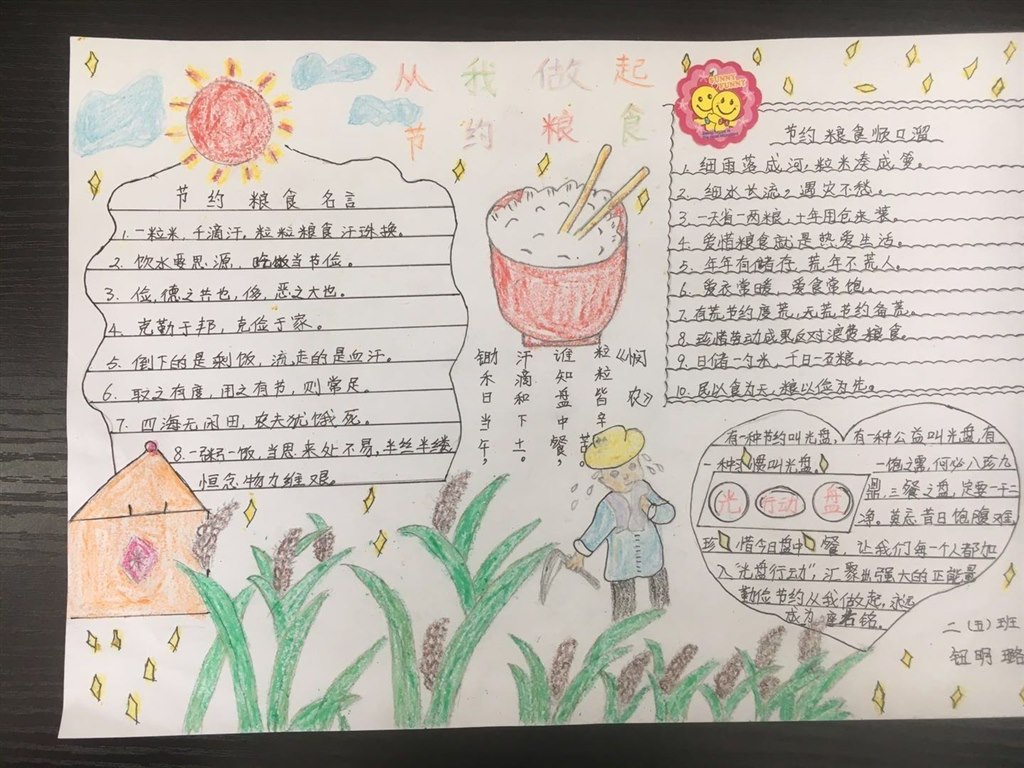 从我做起
节约粮食
节约粮食名言
1.一粒米,千滴汗,粒粒粮食汗珠换。
2.饮水要思源,吃饭当节俭。
3.俭,德之共也,侈,恶之大也。
4.克勤于邦,克俭于家。
5.倒下的是剩饭,流走的是血汗。
6.取之有度,用之有节,则常足。
7.四海无闲田,农夫犹饿死。
8.一粥一饭,当思来处不易,半丝半缕
恒念物力维艰。
《悯农》
锄禾日当午,
汗滴和下土。
谁知盘中餐,
粒粒皆辛苦。
SUNNY
FUNNY
节约粮食顺口溜
1.细雨落成河,粒米凑成箩。
2.细水长流,遇灾不愁。
3.一天省一两粮,十年用仓来装。
4.爱惜粮食就是热爱生活。
5.年年有储存,荒年不荒人。
6.爱衣常暖,爱食常饱。
7.有荒节约度荒,无荒节约备荒。
8.珍惜劳动成果反对浪费粮食。
9.日储一勺米,千日一石粮。
10.民以食为天,粮以俭为先。
有一种节约叫光盘,有一种公益叫光盘,有
一种习惯叫光盘,一饱之需,何必八珍九
鼎,三餐之盘,定要一干二
净。莫忘昔日饱腹难,
光 行动 盘
珍惜今日盘中餐,让我们每一个人都加
入"光盘行动",汇聚出强大的正能量
勤俭节约从我做起,永远
成为座右铭。
二(五)班
钮明璐